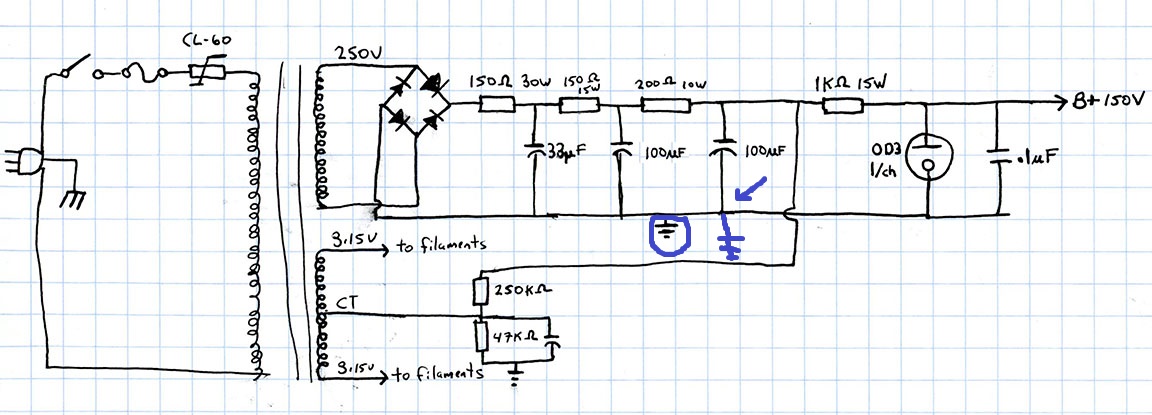 CL-60
250V
150Ω 30W
150Ω
15W
200Ω 10W
1KΩ 15W
B+ 150V
33µF
100µF
100µF
OD3
1/ch
.1µF
3.15V → to filaments
CT
250KΩ
47KΩ
3.15V → to filaments